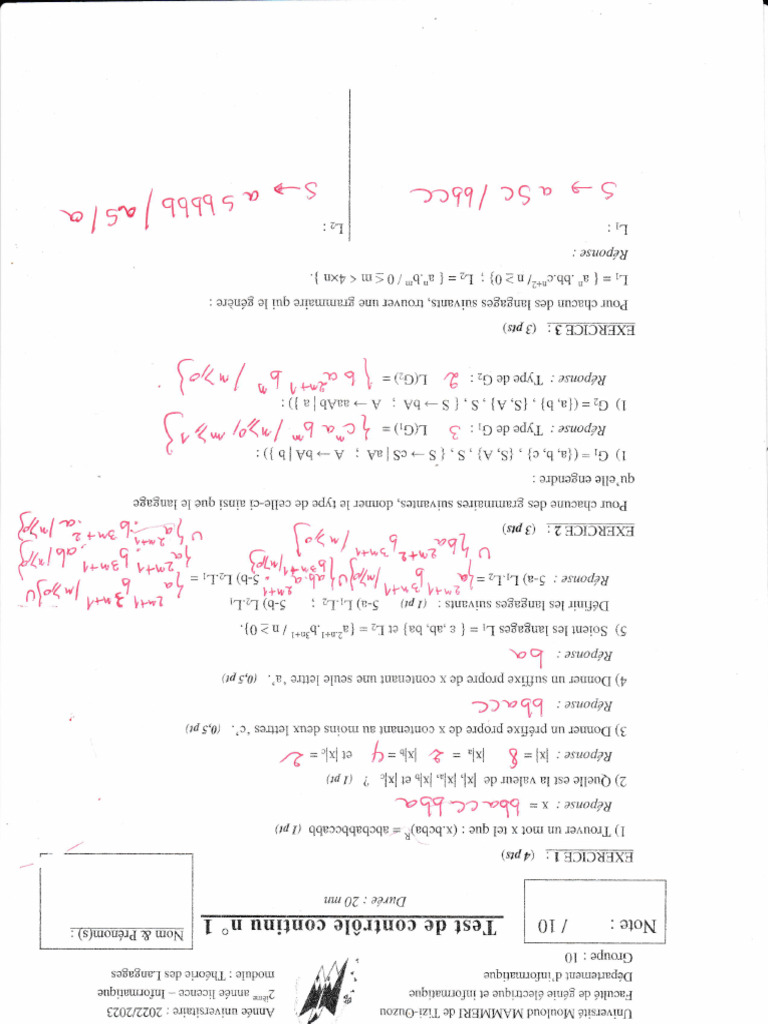 Université Mouloud MAMMERI de Tizi-Ouzou
Faculté de génie électrique et informatique
Département d'informatique
Groupe : 10
Année universitaire : 2022/2023
2ième année licence – Informatique
module : Théorie des Langages
Note : / 10
Test de contrôle continu n° 1
Durée : 20 mn
Nom & Prénom(s) :
EXERCICE 1 : (4 pts)
1) Trouver un mot x tel que : (x.bcba)ᴿ = abcbabbccabb (1 pt)
Réponse : x = bbaccbba
2) Quelle est la valeur de |x|, |x|a, |x|b et |x|c ? (1 pt)
Réponse : |x| = 8 |x|a = 2 |x|b = 4 et |x|c = 2
3) Donner un préfixe propre de x contenant au moins deux lettres 'c'. (0,5 pt)
Réponse : bbacc
4) Donner un suffixe propre de x contenant une seule lettre 'a'. (0,5 pt)
Réponse : ba
5) Soient les langages L₁ = { ε, ab, ba} et L₂ = {a²·ⁿ⁺¹.b³ⁿ⁺¹ / n ≥ 0}.
Définir les langages suivants : (1 pt) 5-a) L₁.L₂ ; 5-b) L₂.L₁
Réponse : 5-a) L₁.L₂ = {a²ⁿ⁺¹ b³ⁿ⁺¹ / n≥0} U {ab.a²ⁿ⁺¹ b³ⁿ⁺¹ / n≥0}
U {ba²ⁿ⁺² b³ⁿ⁺¹ / n≥0}
5-b) L₂.L₁ = {a²ⁿ⁺¹ b³ⁿ⁺¹ / n≥0} U
{a²ⁿ⁺¹ b³ⁿ⁺¹.ab / n≥0}
U {a²ⁿ⁺¹ b³ⁿ⁺².a / n≥0}
EXERCICE 2 : (3 pts)
Pour chacune des grammaires suivantes, donner le type de celle-ci ainsi que le langage
qu'elle engendre :
1) G₁ = ({a, b, c} , {S, A} , S , { S → cS | aA ; A → bA | b }) :
Réponse : Type de G₁ : 3 L(G₁) = {cⁿ a bᵐ / n≥0, m≥1}
1) G₂ = ({a, b} , {S, A} , S , { S → bA ; A → aaAb | a }) :
Réponse : Type de G₂ : 2 L(G₂) = {b a²ⁿ⁺¹ bⁿ / n≥0}
EXERCICE 3 : (3 pts)
Pour chacun des langages suivants, trouver une grammaire qui le génère :
L₁ = { aⁿ .bb.cⁿ⁺² / n ≥ 0} ; L₂ = { aⁿ.bᵐ / 0 ≤ m < 4×n }.
Réponse :
L₁ :
S → aSc / bbcc
L₂ :
S → aSbbbb / aS / a